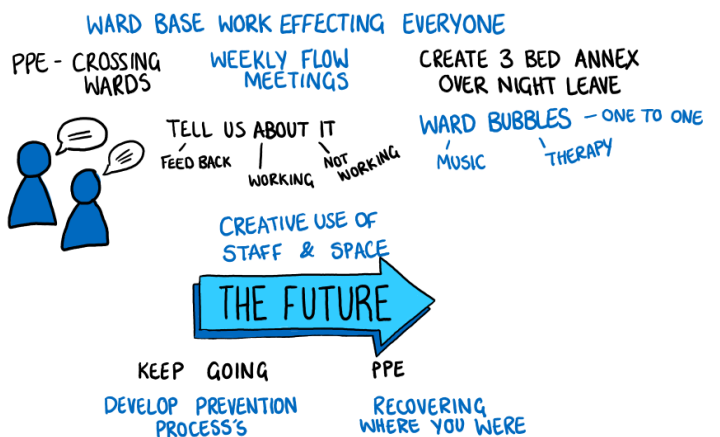 WARD BASE WORK EFFECTING EVERYONE
PPE - CROSSING
WARDS
WEEKLY FLOW
MEETINGS
CREATE 3 BED ANNEX
OVER NIGHT LEAVE
TELL US ABOUT IT
FEED BACK
WORKING
NOT
WORKING
WARD BUBBLES - ONE TO ONE
MUSIC
THERAPY
CREATIVE USE OF
STAFF & SPACE
THE FUTURE
KEEP GOING
DEVELOP PREVENTION
PROCESS'S
PPE
RECOVERING
WHERE YOU WERE